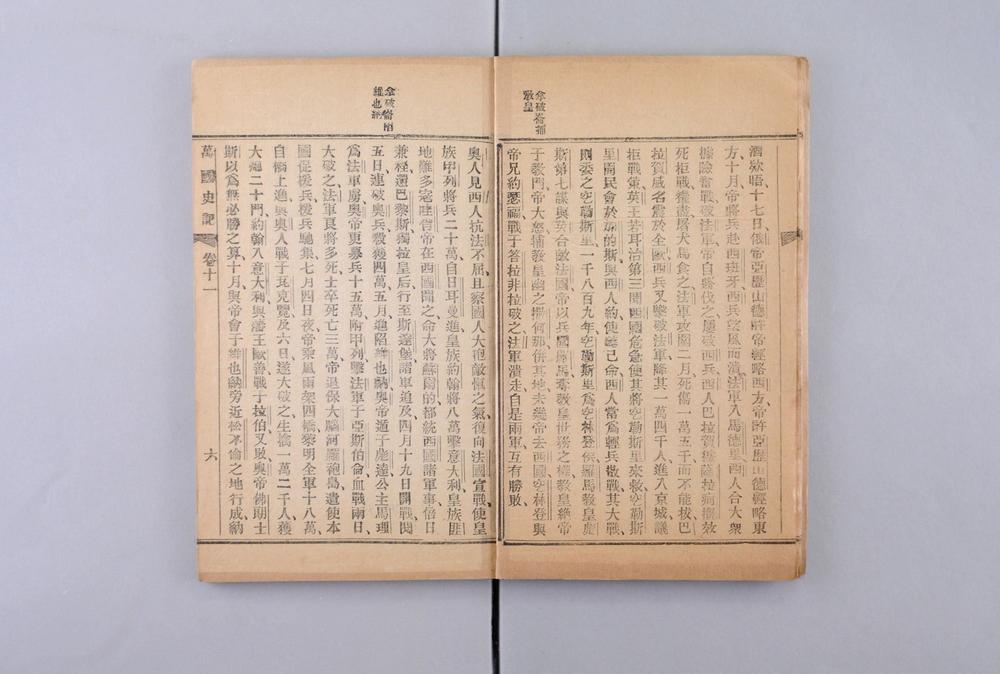 拿破崙捕
教皇
酒歟唔十七日俄帝亞歷山德許帝經略西方帝許亞歷山德經略東
方、十月帝將兵赴西班牙西兵望風而潰法軍入馬德里西人合大衆
據險奮戰破法軍帝自將伐之屢破西兵西人巴拉賀據薩拉
死拒戰糧盡屠犬馬食之法軍攻圍二月死傷一萬五千而不能拔巴
拉賀威名震於全歐西兵又擊破法軍降其一萬四千人進入京城議
拒戰策英王若耳治第三聞西國危急使其將空勒斯里來救空勒斯
里開民會於的斯與西人約使命西人當爲輕兵散戰其大戰
則委之空勒斯里一千八百九年空勒斯里爲空林登侯羅馬教皇
斯第七謀與英合敵法國帝以兵圍羅馬奪教皇世務之權教皇絶帝
于教門帝大怒捕教皇幽之併其地未幾帝去西國空林登與
帝兄約瑟福戰于答拉非拉破之法軍潰走自是兩軍互有勝敗、
拿破崙陷
維也納
奧人見西人抗法不屈且察國人大抱敵愾之氣復向法國宣戰使皇
族甲列將兵二十萬自日耳曼進皇族約翰將八萬擊意大利皇族匪
地難多寇時帝在西國聞之命大將蘇爾的都統西國諸軍事倍日
兼程還巴黎斯獨拉皇后行至斯達堡諸軍追及四月十九日開戰閱
五日連破奧兵殺獲四萬五月進陷維也納奧帝遁于遠公主馬理
爲法軍虜奧帝更募兵十五萬附甲列擊法軍于亞斯伯侖血戰兩日、
大破之法軍良將多死士卒死亡三萬帝退保大腦河羅砲島遣使本
國促援兵援兵馳集七月四日夜帝乘風雨架四橋黎明全軍十八萬、
自橋上進與奧人戰于瓦克覽及六日遂大破之生擒一萬二千人獲
大礮二十門約翰入意大利與藩王歐善戰于拉伯又敗奧帝佛朗士
斯以爲無必勝之算十月與帝會于維也納旁近松不倫之地行成納
萬國史記 卷十一 六